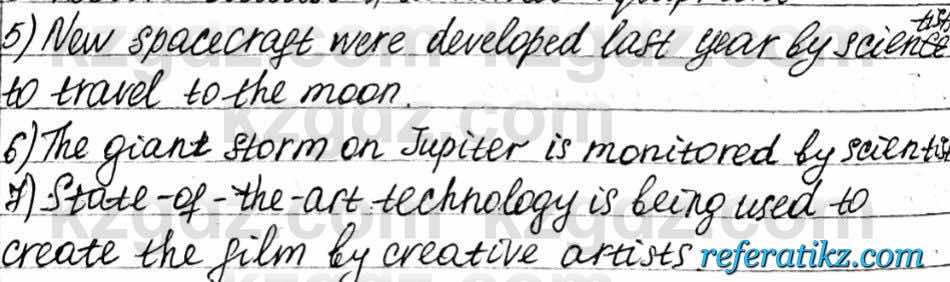 5) New spacecraft were developed last year by scientists
to travel to the moon.
6) The giant storm on Jupiter is monitored by scientis
7) State-of-the-art technology is being used to
create the film by creative artists. referatikz.com
kzgdz.com